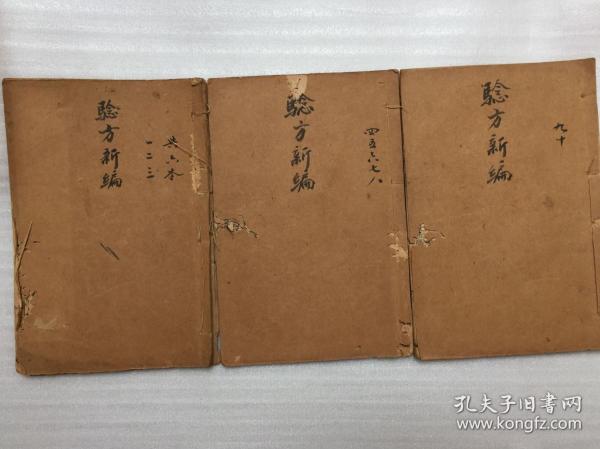 騐方新编
共六本
一二三
騐方新编
四五六七八
騐方新编
九十
孔夫子旧书网
www.kongfz.com